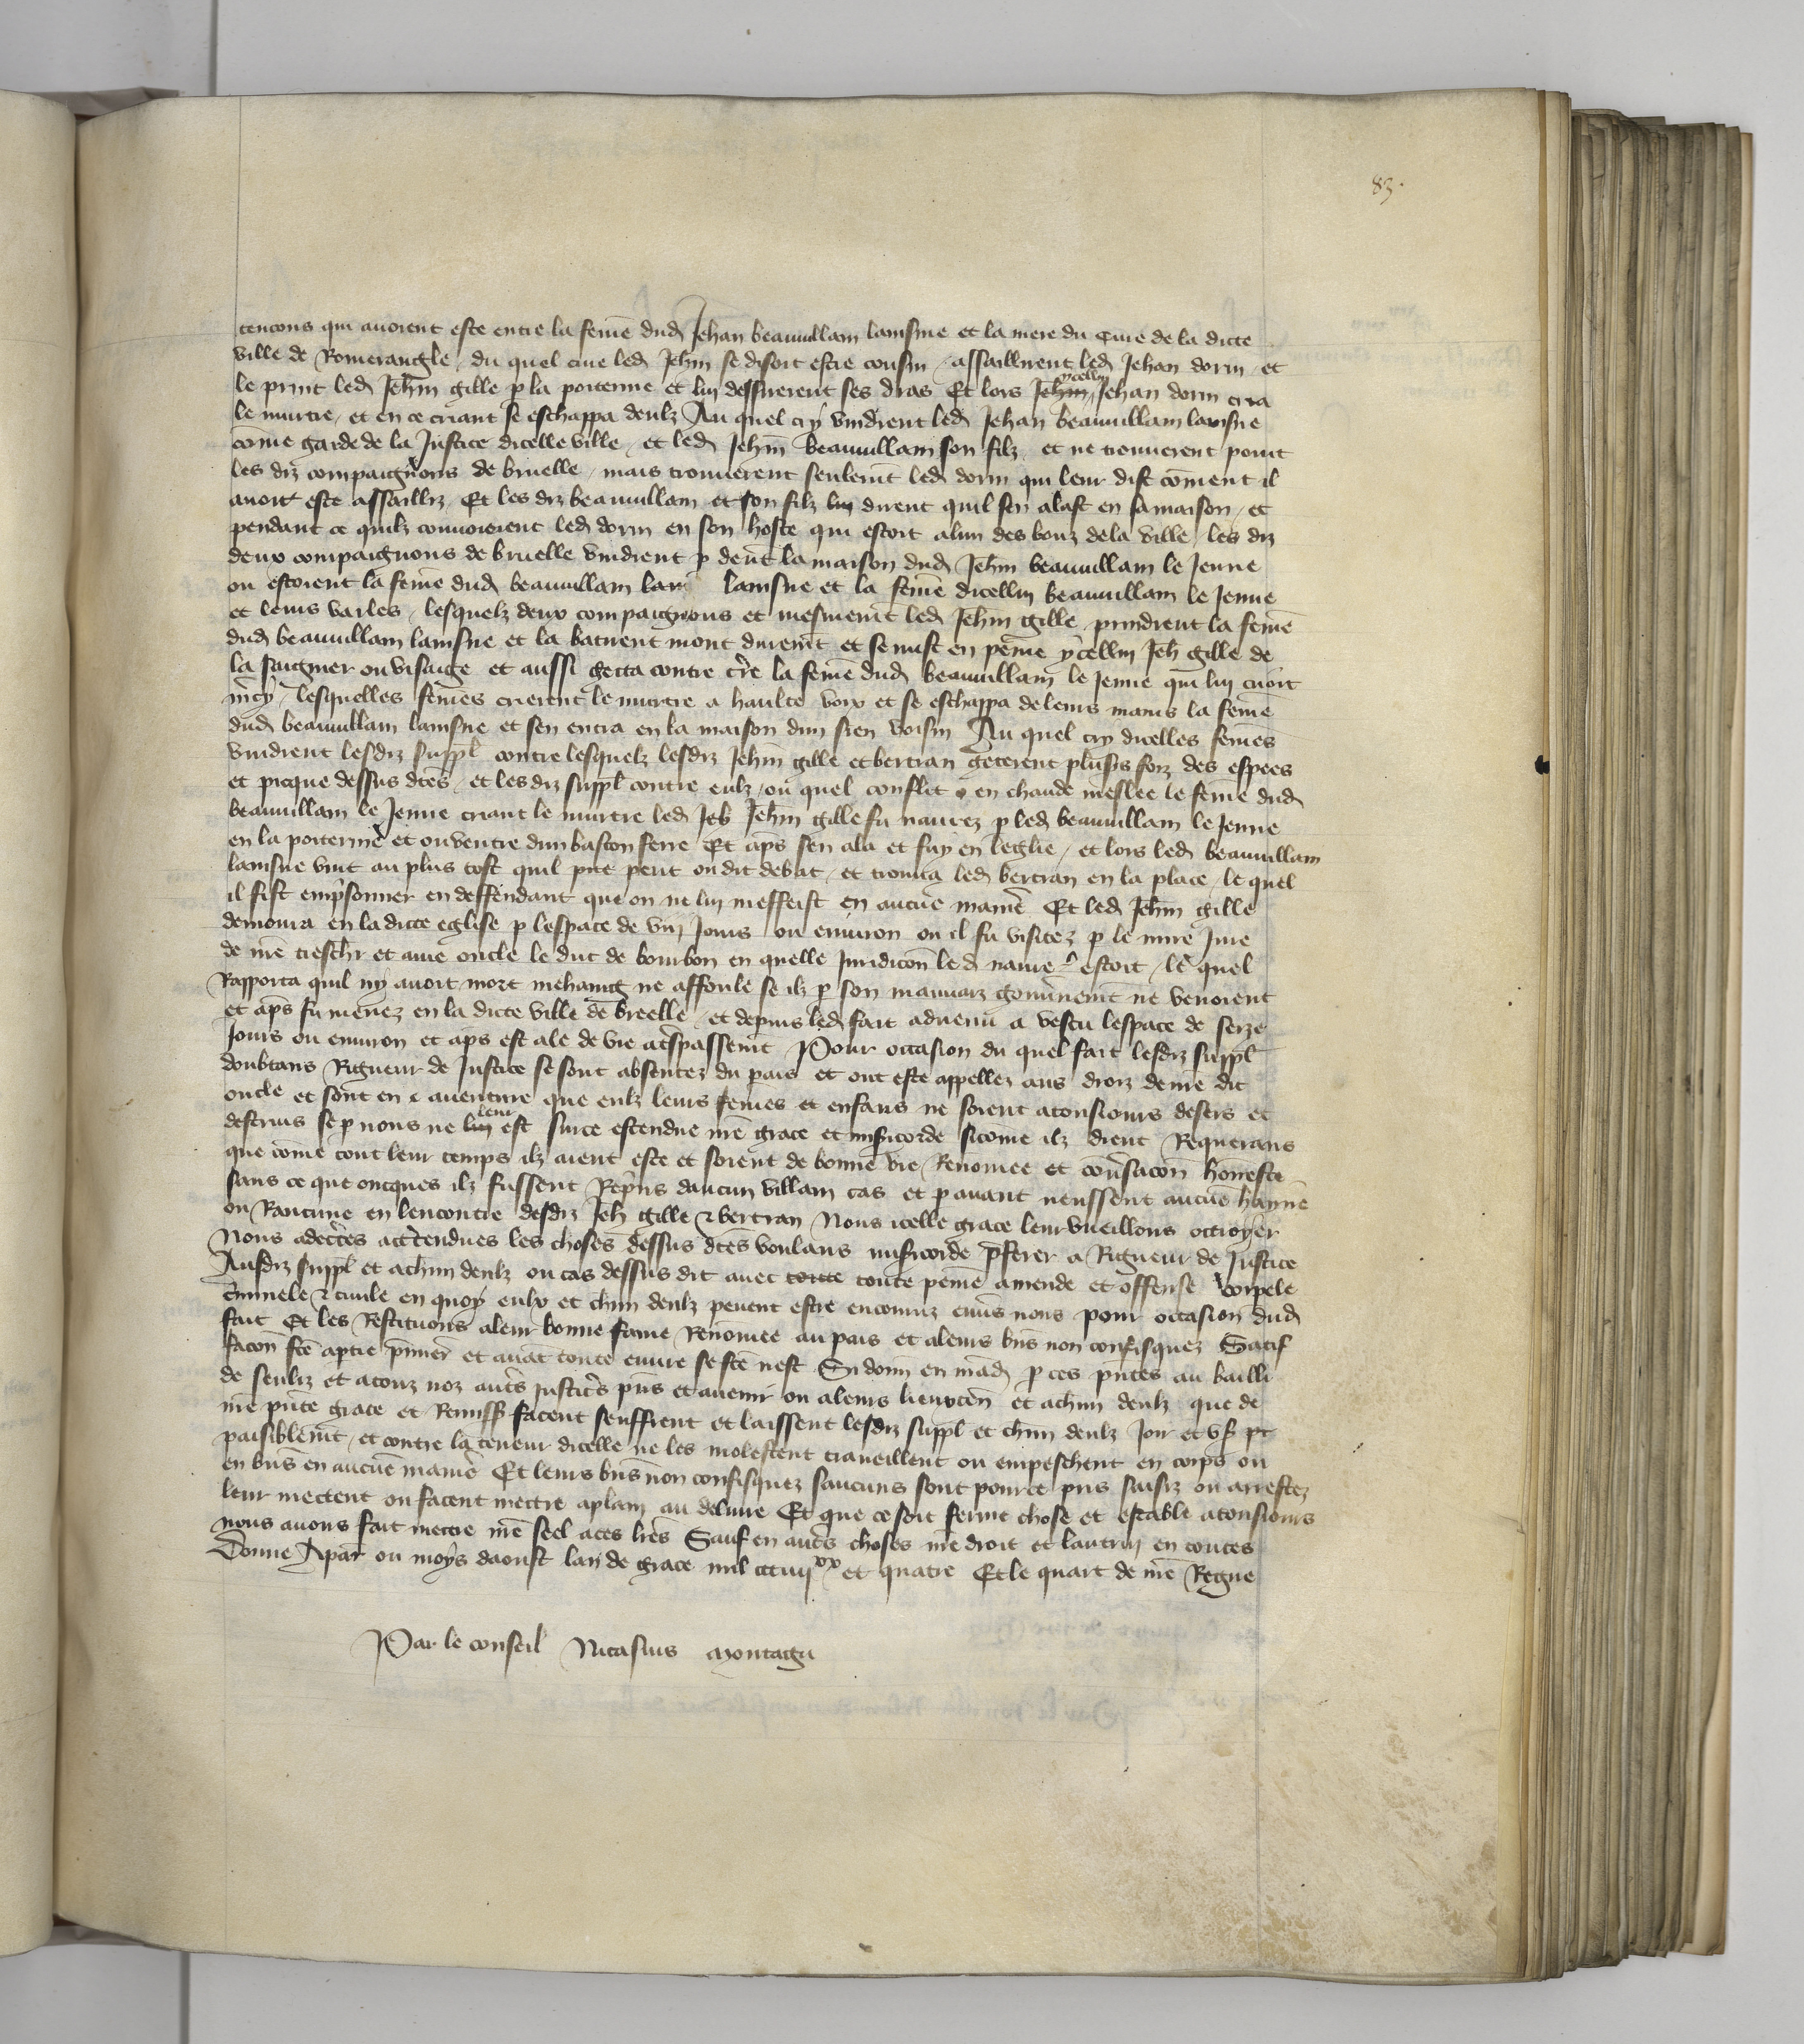 83.
tencons qui avoient este entre la feme dud Jehan beauvillain lainsne et la mere du Cure de la dicte
ville de Romerangle, du quel cure led Jehin se disoit estre cousin, assaillirent led Jehan dorin, et
le print led Jehin gille p la poiterine et lui dessirerent ses dras Et lors Jehin ycellui Jehan dorin cria
le murtre, et en ce criant se eschappa deulz Au quel cry vindrent led Jehan beauvillain lainsne
come garde de la Justice dicelle ville, et led Jehin beauvillain son filz, et ne trouverent point
les diz compaignons de bruelle, mais trouverent seulemt led dorin qui leur dist coment il
avoit este assailliz, Et les diz beauvillain et son filz lui dirent quil sen alast en sa maison, et
pendant ce quilz convoioient led dorin en son hoste qui estoit alun des bouz dela ville, les diz
deux compaignons de bruelle vindrent p devt la maison dud Jehin beauvillain le Jeune
ou estoient la feme dud beauvillain lain lainsne et la feme dicellui beauvillain le Jeune
et leurs varles, lesquelz deux compaignons et mesmemt led Jehin gille prindrent la feme
dud beauvillain lainsne et la batirent mont duremt et se mist en peine ycellui Jeh gille de
la saigner ou visaige et aussi getta contre tre la feme dud beauvillain le Jeune qui lui crioit
mcy, lesquelles femes crierent le murtre a haulte voix et se eschappa de leurs mains la feme
dud beauvillain lainsne et sen entra en la maison dun sien voisin Au quel cry dicelles femes
vindrent lesdiz suppl contre lesquelz lesdiz Jehin gille et bertran geterent plusrs foiz des espees
et picque dessus dtes, et les diz suppl contre eulz, ou quel conflit en chaude meslee le feme dud
beauvillain le Jeune criant le murtre led Jeh Jehin gille fu navrez p led beauvillain le Jeune
en la poiterine et ou ventre dun baston ferre Et aps sen ala et fuy en leglie, et lors led beauvillain
lainsne vint au plus tost quil pot peut ou dit debat, et trouva led bertran en la place, le quel
il fist emprisonner en deffendant que on ne lui meffeist en aucune maniere Et led Jehin gille
demoura en la dicte eglise p lespace de viij Jours ou environ ou il fu visitez p le mire Jure
de nre treschr et ame oncle le duc de bourbon en quelle Juridicon led navre estoit, le quel
Rapporta quil ny avoit mort mehaing ne affoule se ilz p son mauvaiz gouvnemt ne venoient
et aps fu menez en la dicte ville de breelle, et depuis led fait advenu a vescu lespace de seize
Jours ou environ et aps est ale de vie atspassemt Pour occasion du quel fait lesdiz suppl
doubtans Rigueur de Justice se sont absentez du pais et ont este appellez aus droiz de nre dit
oncle et sont en aventure que eulz leurs femes et enfans ne soient atousiours desers et
destruis se p nous ne lui leur est surce estendue nre grace et misicorde sicome ilz dient Requerans
que come tout leur temps ilz aient este et soient de bonne vie, Renomee et convsacon honeste
sans ce que oncques ilz fussent Repris daucun villain cas et p avant neussent aucune hayne
ou Rancune en lencontre desdiz Jeh gille & bertran Nous icelle grace leur vueillons octroyer
Nous adectes attendues les choses dessus dtes voulans misicorde pferer a Rigueur de Justice
Ausdiz suppl et achun deulz ou cas dessus dit avec toute toute peine amende et offense corpele
criminele & civile en quoy eulx et chun deulz pevent estre encouruz envs nous pour occasion dud
fait Et les Restituons aleur bonne fame Renomee au pais et aleurs bns non confisquez Satif
facon fte aptie pmier et avat toute euvre se fte nest Si donn en mad p ces pntes au bailli
de senliz et atouz noz auts justics pns et avenir ou aleurs lieuxten et achun deulz que de
nre pnte grace et Remiss facent seuffrent et laissent lesdiz suppl et chun deulz Joir et us pt
paisiblemt, et contre la teneur dicelle ne les molestent traveillent ou empeschent en corps ou
en bns en aucune maniere Et leurs bns non confisquez saucuns sont pource pris saisiz ou arrestez
leur mectent ou facent mectre aplain au delivre Et que ce soit ferme chose et estable atousiours
nous avons fait mectre nre seel aces lres Sauf en auts choses nre droit et lautruy en toutes
Donne Apar ou moys daoust lan de grace mil ccciiijxx et quatre Et le quart de nre Regne
Par le conseil Nicasius Montagu